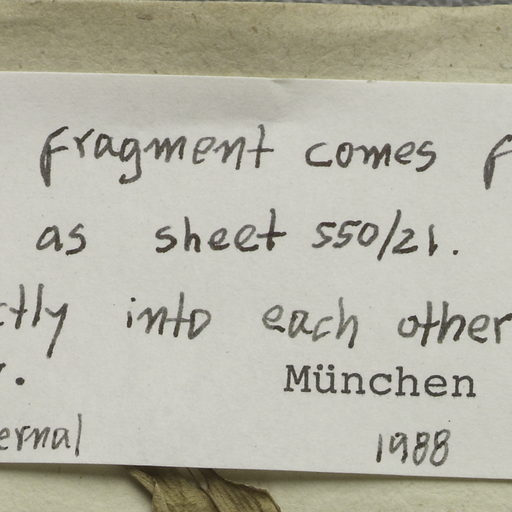 fragment comes f
as sheet 550/21.
ctly into each other
.
München
ernal 1988